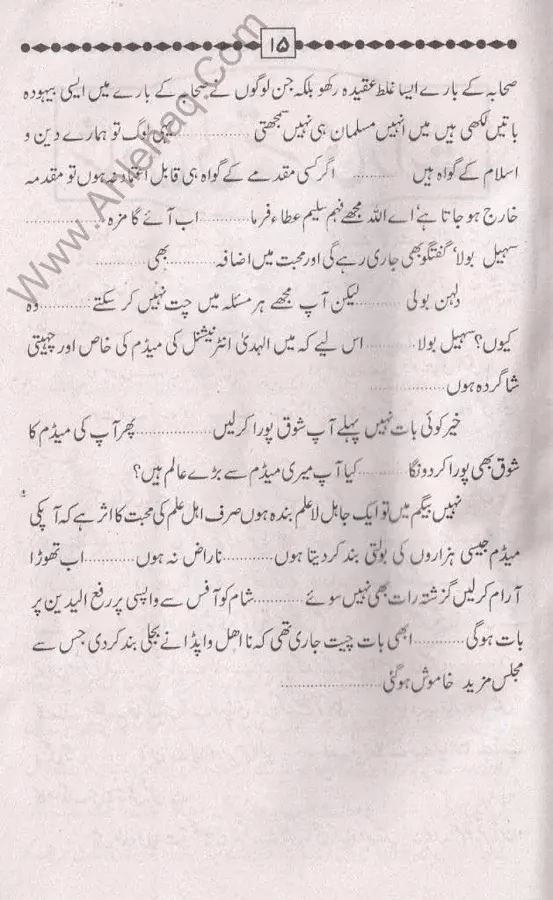 ۱۵
صحابہ کے بارے ایسا غلط عقیدہ رکھو بلکہ جن لوگوں نے صحابہ کے بارے میں ایسی بیہودہ
باتیں لکھی ہیں میں انہیں مسلمان ہی نہیں سمجھتی ............ یہی لوگ تو ہمارے دین و
اسلام کے گواہ ہیں ............ اگر کسی مقدمے کے گواہ ہی قابل اعتماد نہ ہوں تو مقدمہ
خارج ہو جاتا ہے‘ اے اللہ مجھے فہم سلیم عطاء فرما ............ اب آئے گا مزہ ............
سہیل بولا‘ گفتگو بھی جاری رہے گی اور محبت میں اضافہ ............ بھی ............
دلہن بولی ............ لیکن آپ مجھے ہر مسئلہ میں چت نہیں کر سکتے ............ وہ
کیوں؟ سہیل بولا ............ اس لیے کہ میں الہدیٰ انٹرنیشنل کی میڈم کی خاص اور چہیتی
شاگردہ ہوں ............
خیر کوئی بات نہیں پہلے آپ شوق پورا کرلیں ............ پھر آپ کی میڈم کا
شوق بھی پورا کردونگا ............ کیا آپ میری میڈم سے بڑے عالم ہیں؟
نہیں بیگم میں تو ایک جاہل لاعلم بندہ ہوں صرف اہل علم کی محبت کا اثر ہے کہ آپکی
میڈم جیسی ہزاروں کی بولتی بند کر دیتا ہوں ............ ناراض نہ ہوں ............ اب تھوڑا
آرام کرلیں گزشتہ رات بھی نہیں سوئے ............ شام کو آفس سے واپسی پر رفع الیدین پر
بات ہوگی ............ ابھی بات چیت جاری تھی کہ نا اھل واپڈا نے بجلی بند کردی جس سے
مجلس مزید خاموش ہوگئی ............
Www.Ahlehaq.Com